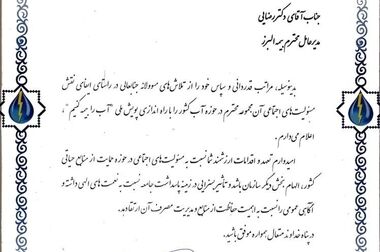 جناب آقای دکتر رضایی
مدیرعامل محترم بیمه البرز
بدینوسیله، مراتب قدردانی و سپاس خود را از تلاش‌های مسوولانه جنابعالی در راستای ایفای نقش
مسئولیت‌های اجتماعی آن مجموعه محترم در حوزه آب کشور را با راه اندازی پویش ملی "آب را بیمه کنیم"،
اعلام می‌دارم.
امیدوارم تعهد و اقدامات ارزشمند شما نسبت به مسئولیت‌های اجتماعی در حوزه حمایت از منابع حیاتی
کشور، الهام بخش دیگر سازمان‌ها باشد و تأثیر بسزایی در زمینه پاسداشت جامعه نسبت به نعمت‌های الهی داشته و
آگاهی عمومی را نسبت به اهمیت حفاظت از منابع و مدیریت مصرف آن ارتقا دهد.
در پناه خداوند متعال همواره موفق باشید.